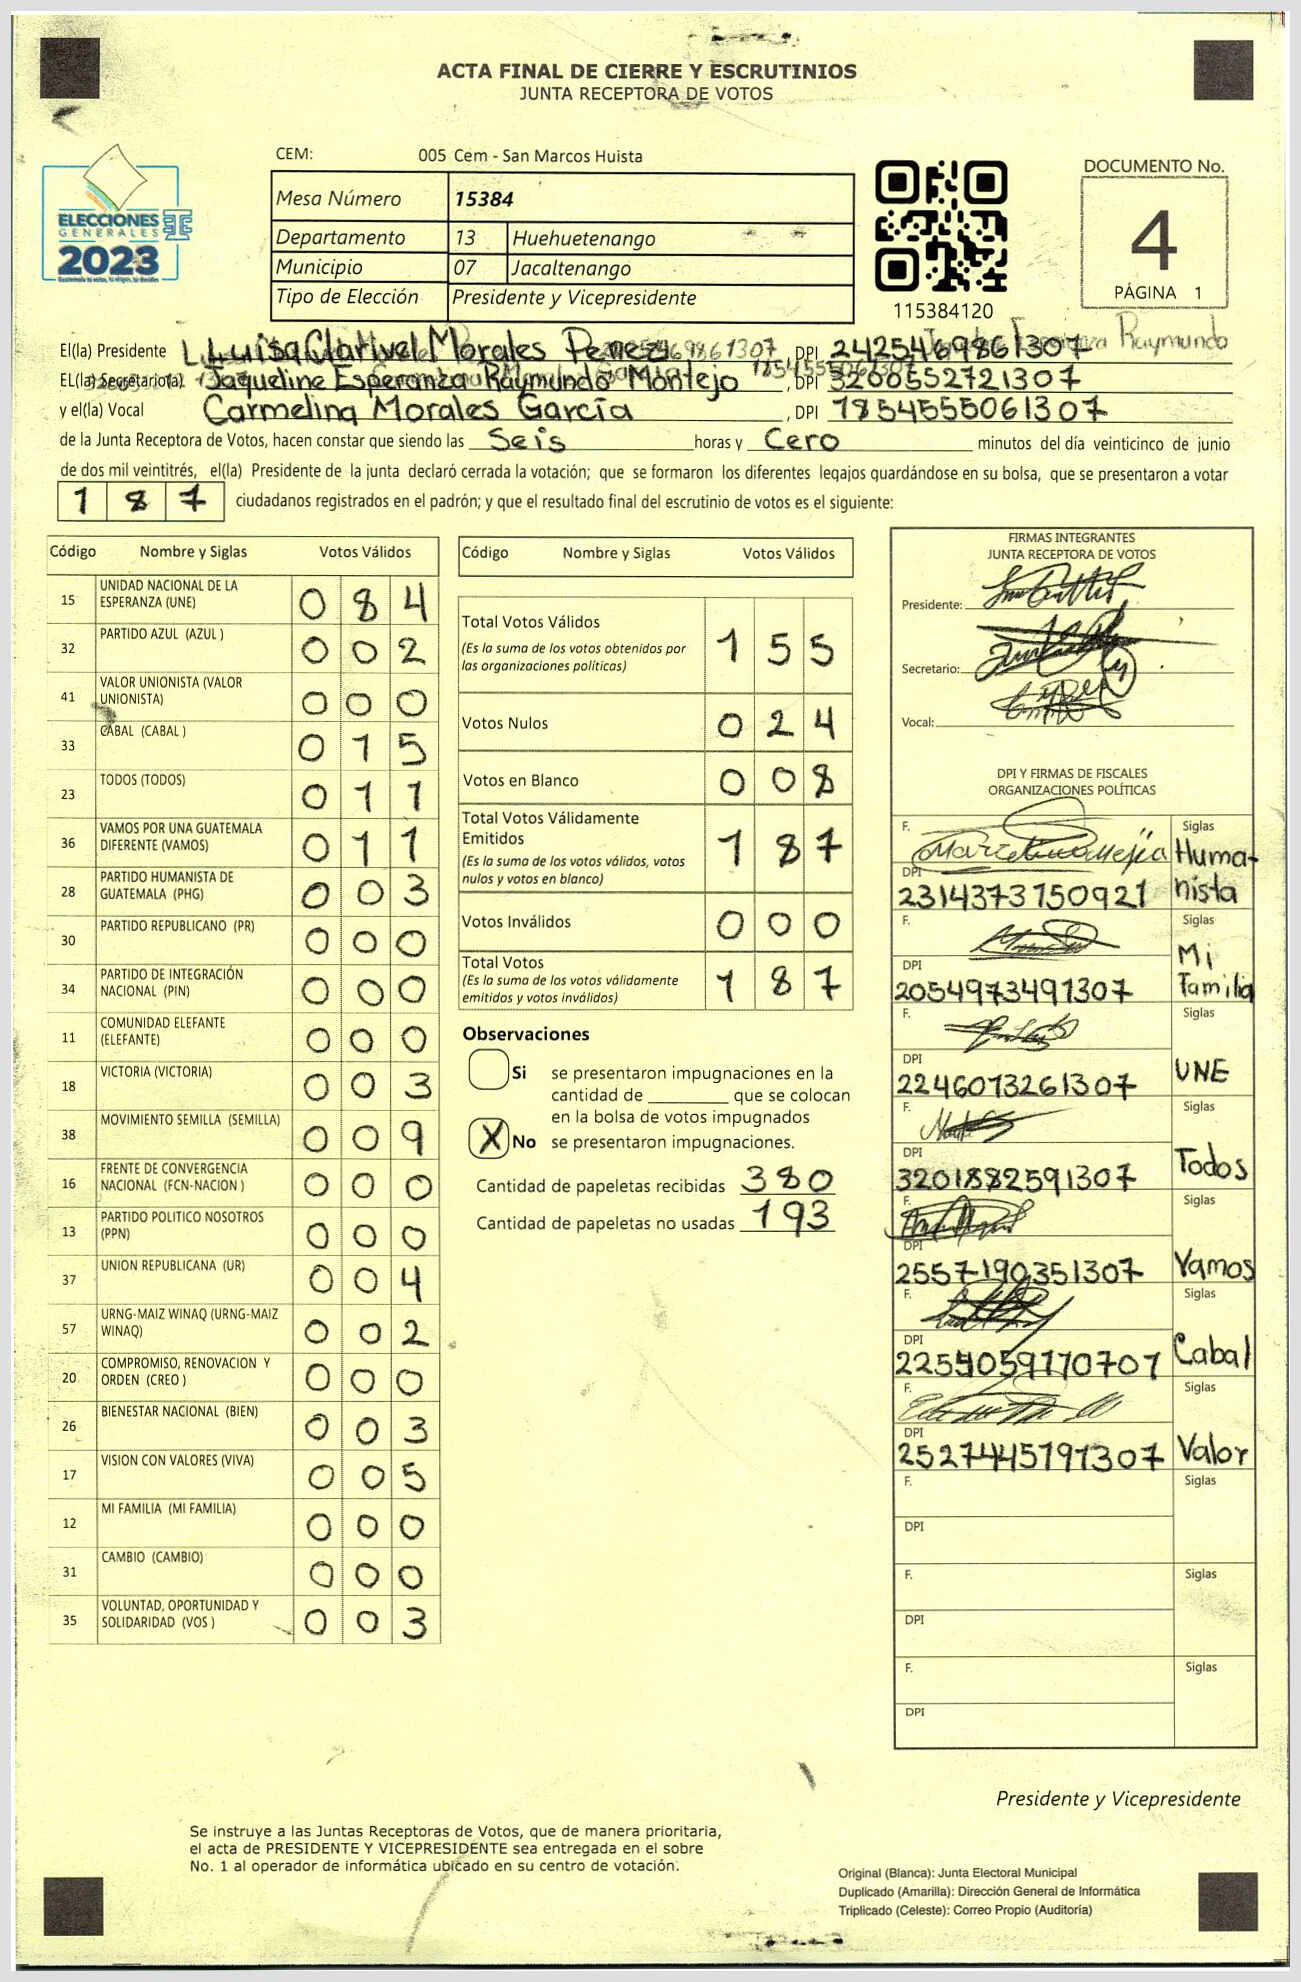 ACTA FINAL DE CIERRE Y ESCRUTINIOS
JUNTA RECEPTORA DE VOTOS
CEM: 005 Cem - San Marcos Huista
ELECCIONES
GENERALES
2023
Mesa Número 15384
Departamento 13 Huehuetenango
Municipio 07 Jacaltenango
Tipo de Elección Presidente y Vicepresidente
115384120
DOCUMENTO No.
4
PÁGINA 1
El(la) Presidente Luisa Clarivel Morales Perez, DPI 2425469861307
EL(la) Secretario(a) Jaqueline Esperanza Raymundo Montejo, DPI 3200552721307
y el(la) Vocal Carmelina Morales García, DPI 1854555061307
de la Junta Receptora de Votos, hacen constar que siendo las Seis horas y Cero minutos del día veinticinco de junio
de dos mil veintitrés, el(la) Presidente de la junta declaró cerrada la votación; que se formaron los diferentes legajos quardándose en su bolsa, que se presentaron a votar
187 ciudadanos registrados en el padrón; y que el resultado final del escrutinio de votos es el siguiente:
Código Nombre y Siglas Votos Válidos
15 UNIDAD NACIONAL DE LA ESPERANZA (UNE) 084
32 PARTIDO AZUL (AZUL ) 002
41 VALOR UNIONISTA (VALOR UNIONISTA) 000
33 CABAL (CABAL ) 015
23 TODOS (TODOS) 011
36 VAMOS POR UNA GUATEMALA DIFERENTE (VAMOS) 011
28 PARTIDO HUMANISTA DE GUATEMALA (PHG) 003
30 PARTIDO REPUBLICANO (PR) 000
34 PARTIDO DE INTEGRACIÓN NACIONAL (PIN) 000
11 COMUNIDAD ELEFANTE (ELEFANTE) 000
18 VICTORIA (VICTORIA) 003
38 MOVIMIENTO SEMILLA (SEMILLA) 009
16 FRENTE DE CONVERGENCIA NACIONAL (FCN-NACION ) 000
13 PARTIDO POLITICO NOSOTROS (PPN) 000
37 UNION REPUBLICANA (UR) 004
57 URNG-MAIZ WINAQ (URNG-MAIZ WINAQ) 002
20 COMPROMISO, RENOVACION Y ORDEN (CREO ) 000
26 BIENESTAR NACIONAL (BIEN) 003
17 VISION CON VALORES (VIVA) 005
12 MI FAMILIA (MI FAMILIA) 000
31 CAMBIO (CAMBIO) 000
35 VOLUNTAD, OPORTUNIDAD Y SOLIDARIDAD (VOS ) 003
Código Nombre y Siglas Votos Válidos
Total Votos Válidos 155
(Es la suma de los votos obtenidos por
las organizaciones políticas)
Votos Nulos 024
Votos en Blanco 008
Total Votos Válidamente
Emitidos 187
(Es la suma de los votos válidos, votos
nulos y votos en blanco)
Votos Inválidos 000
Total Votos 187
(Es la suma de los votos válidamente
emitidos y votos inválidos)
Observaciones
Si se presentaron impugnaciones en la
cantidad de ________ que se colocan
en la bolsa de votos impugnados
X No se presentaron impugnaciones.
Cantidad de papeletas recibidas 380
Cantidad de papeletas no usadas 193
FIRMAS INTEGRANTES
JUNTA RECEPTORA DE VOTOS
Presidente:
Secretario:
Vocal:
DPI Y FIRMAS DE FISCALES
ORGANIZACIONES POLÍTICAS
F. Siglas Humanista
DPI 2314373750921
F. Siglas Mi Familia
DPI 2054973491307
F. Siglas UNE
DPI 2246013261307
F. Siglas Todos
DPI 3201882591307
F. Siglas Vamos
DPI 2557190351307
F. Siglas Cabal
DPI 2254059170701
F. Siglas Valor
DPI 2527445191307
F. Siglas
DPI
F. Siglas
DPI
F. Siglas
DPI
Presidente y Vicepresidente
Se instruye a las Juntas Receptoras de Votos, que de manera prioritaria,
el acta de PRESIDENTE Y VICEPRESIDENTE sea entregada en el sobre
No. 1 al operador de informática ubicado en su centro de votación.
Original (Blanca): Junta Electoral Municipal
Duplicado (Amarilla): Dirección General de Informática
Triplicado (Celeste): Correo Propio (Auditoría)